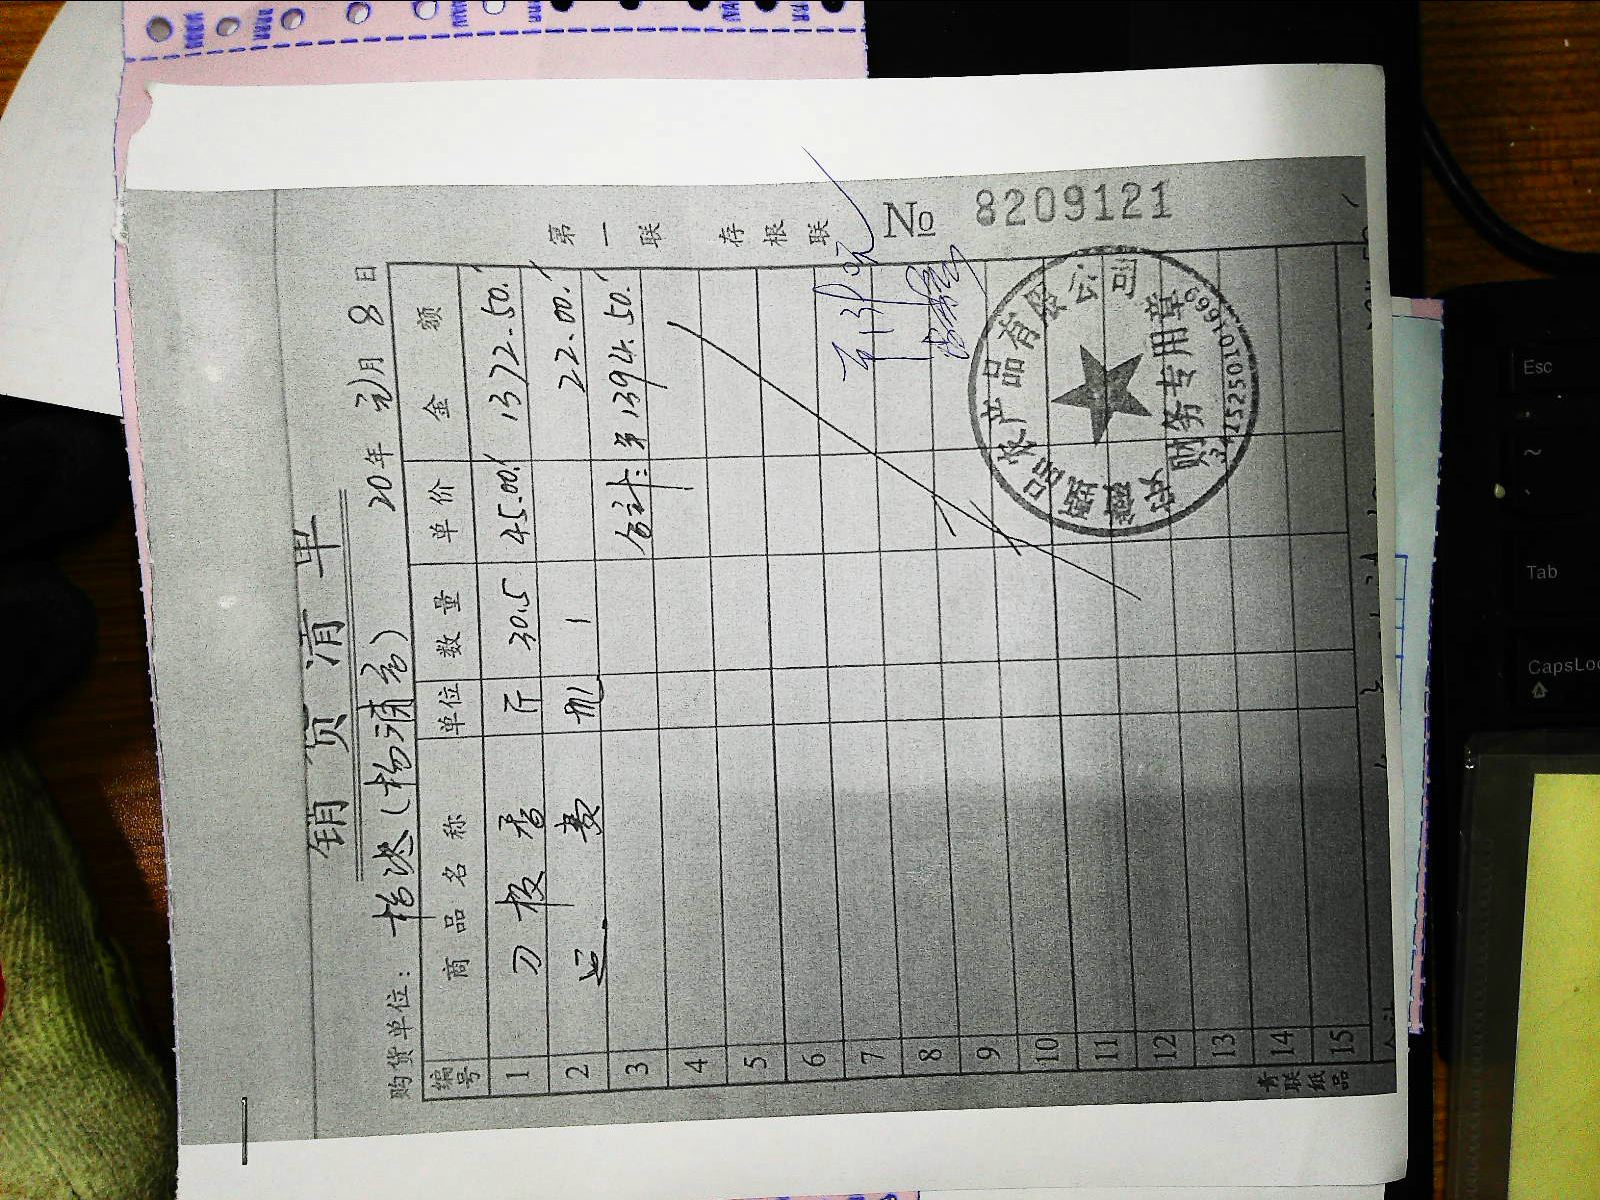 销货清单
No 8209121
20年 月8日
购货单位:
编号 商品名称 单位 数量 单价 金额
1 刀板香 斤 30.5 45.00 1372.50
2 运费 1 22.00
3 合计: 1394.50
4
5
6
7
8
9
10
11
12
13
14
15
第一联 存根联
青联纸品
农产品有限公司
财务专用章
Esc
Tab
CapsLoc